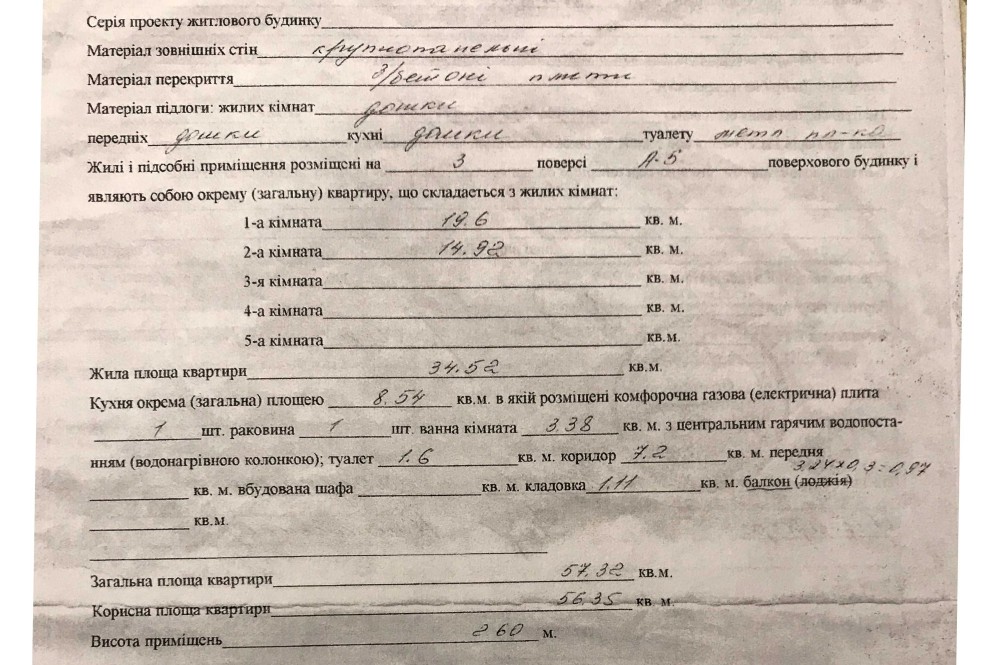 Серія проекту житлового будинку
Матеріал зовнішніх стін крупнопанельні
Матеріал перекриття з/бетоні плити
Матеріал підлоги: жилих кімнат дошки
передніх дошки кухні дошки туалету метл пл-ка
Жилі і підсобні приміщення розміщені на 3 поверсі А-5 поверхового будинку і
являють собою окрему (загальну) квартиру, що складається з жилих кімнат:
1-а кімната 19.6 кв. м.
2-а кімната 14.92 кв. м.
3-я кімната кв. м.
4-а кімната кв. м.
5-а кімната кв.м.
Жила площа квартири 34.52 кв.м.
Кухня окрема (загальна) площею 8.54 кв.м. в якій розміщені комфорочна газова (електрична) плита
1 шт. раковина 1 шт. ванна кімната 3.38 кв. м. з центральним гарячим водопоста-
нням (водонагрівною колонкою); туалет 1.6 кв. м. коридор 7.2 кв. м. передня
3,24х0,3=0,97
кв. м. вбудована шафа кв. м. кладовка 1.11 кв. м. балкон (лоджія)
кв.м.
Загальна площа квартири 57.32 кв.м.
Корисна площа квартири 56.35 кв. м.
Висота приміщень 2 60 м.